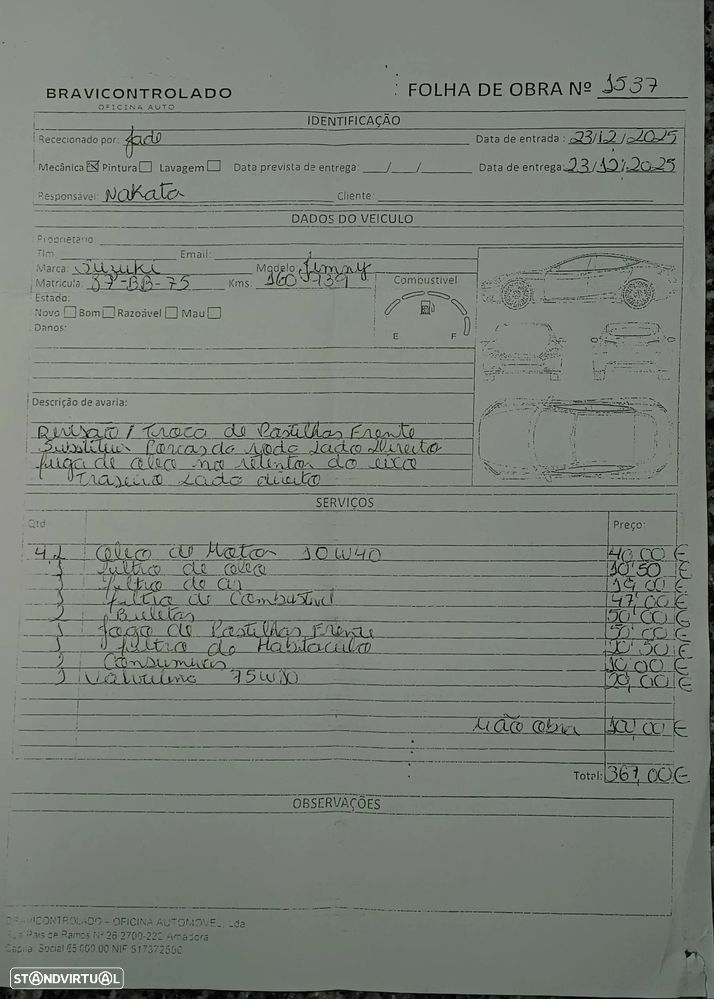 BRAVICONTROLADO
OFICINA AUTO
FOLHA DE OBRA Nº 1537
IDENTIFICAÇÃO
Rececionado por: Jade Data de entrada : 23/12/2025
Mecânica Pintura Lavagem Data prevista de entrega: __/__/__ Data de entrega: 23/12/2025
Responsável: Nakata Cliente:
DADOS DO VEICULO
Proprietário
Tlm Email:
Marca: Suzuki Modelo: Jimny
Matricula: 37-BB-75 Kms: 160 939 Combustivel
Estado:
Novo Bom Razoável Mau
E F
Danos:
Descrição de avaria:
Revisão / Troca de Pastilhas Frente
Substituir Porcas da roda Lado Direito
fuga de oleo no retentor do eixo
Traseiro Lado direito
SERVIÇOS
Qtd Preço:
4 L Oleo de Motor 10W40 40,00 €
1 filtro de oleo 10,50 €
1 filtro de ar 19,00 €
1 filtro de Combustivel 47,00 €
2 Bieletas 50,00 €
1 Jogo de Pastilhas Frente 50,00 €
1 filtro do Habitaculo €
Consumiveis 10,00 €
Valvulina €
Mão obra €
Total: 367,00 €
OBSERVAÇÕES
BRAVICONTROLADO - OFICINA AUTOMOVEL, Lda
Rua Pais de Ramos Nº 26 2700-222 Amadora
Capital Social 65.000.00 NIF
STANDVIRTUAL